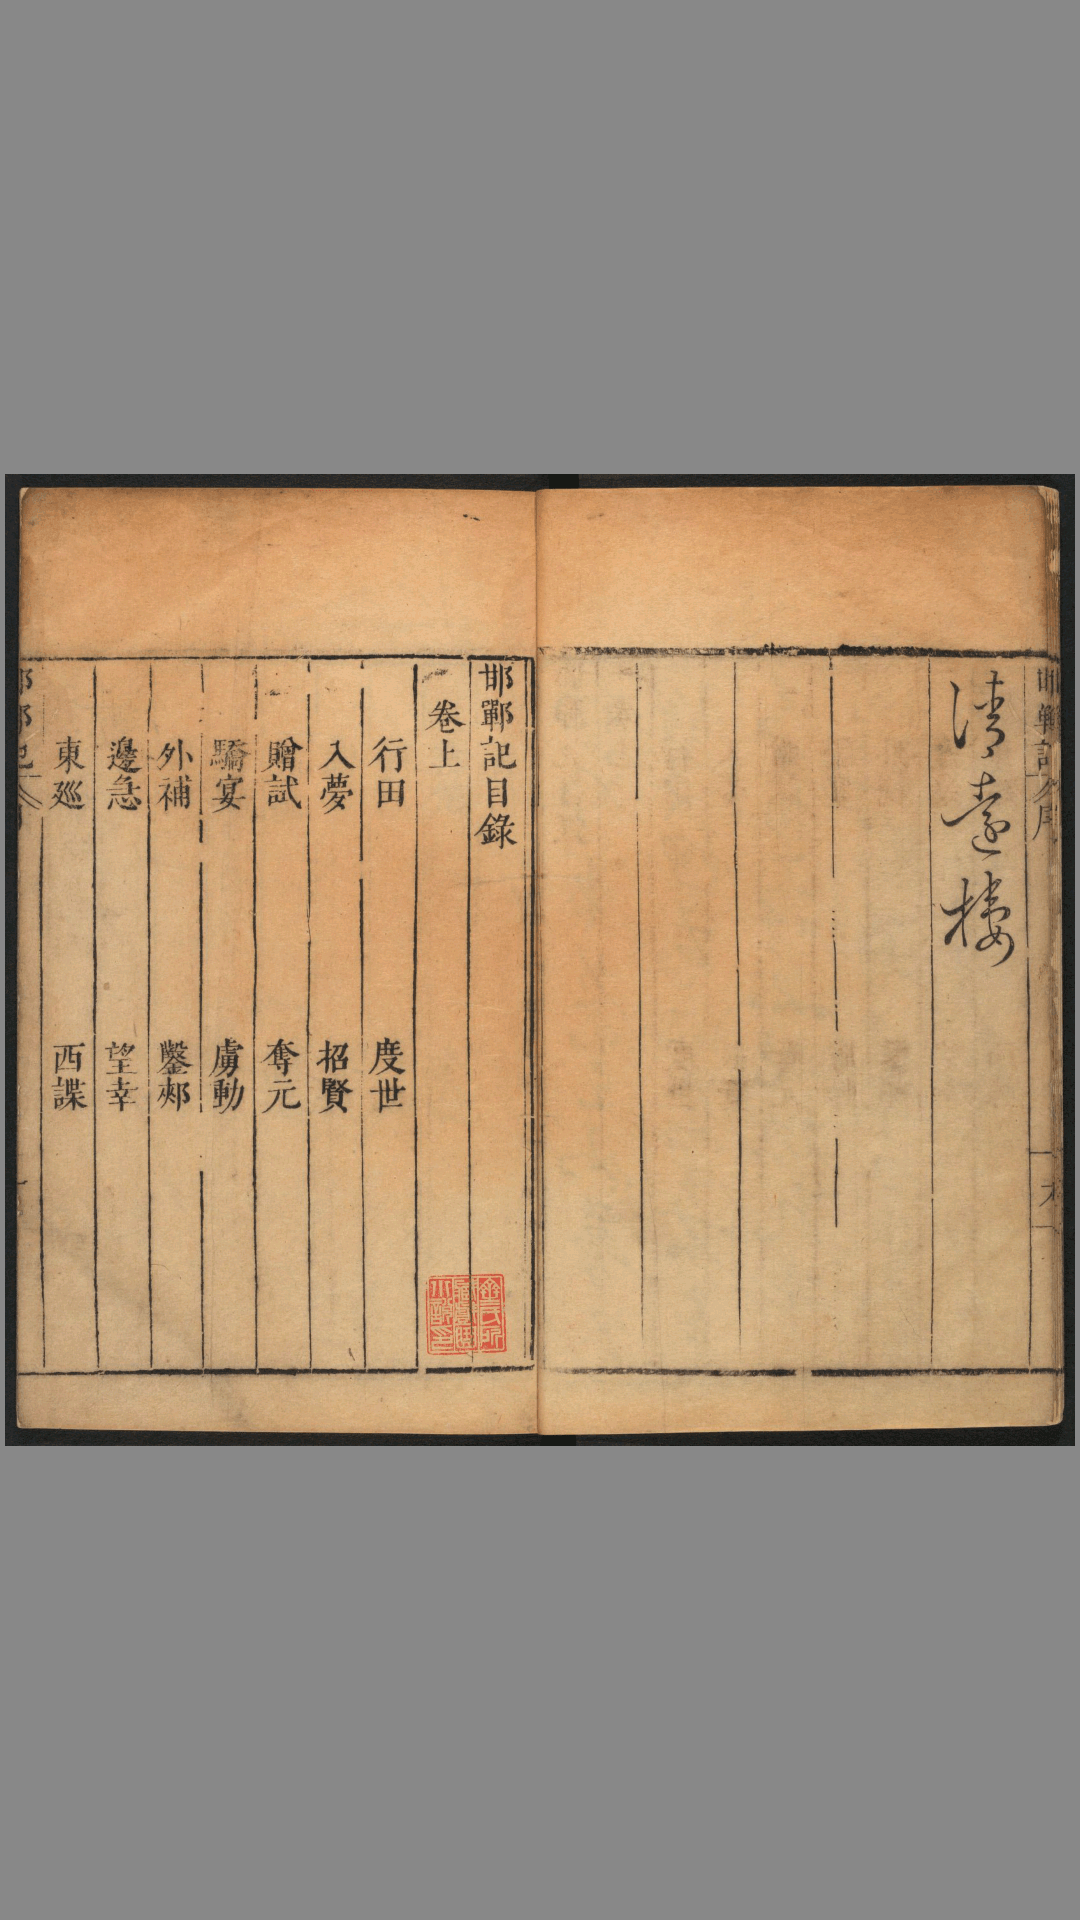 清遠樓
邯鄲記目錄
卷上
行田 度世
入夢 招賢
贈試 奪元
驕宴 虜動
外補 鑿郟
邊急 望幸
東巡 西諜